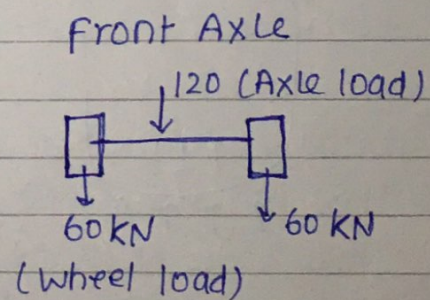 Front Axle
120 (Axle load)
60 KN
60 KN
(Wheel load)